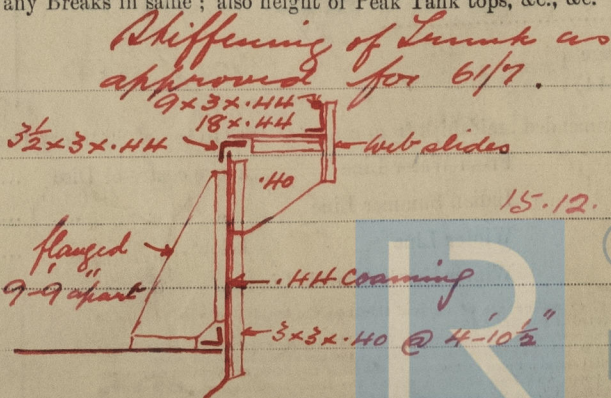 any Breaks in same ; also height of Peak Tank tops, &c., &c.
Stiffening of Trunk as
approved for 61/7.
9 x 3 x .44
18 x .44
3½ x 3 x .44
web slides
.40
15.12.
flanged
9'-9" apart
.44 coaming
3 x 3 x .40 @ 4'-10½"
R